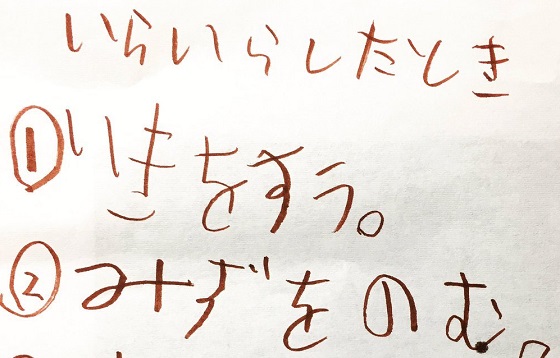 いらいらしたとき
①いきをすう。
②みずをのむ。